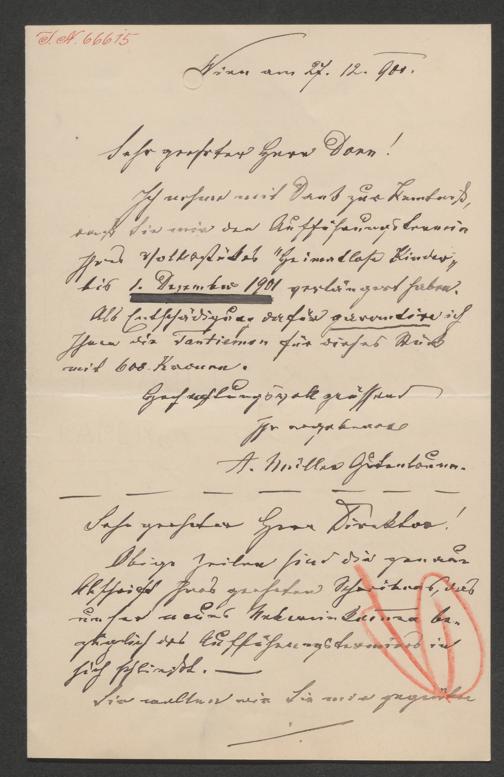 I. N. 66615
Wien am 27. 12. 900.
Sehr geehrter Herr Dorn!
Ich nehme mit Dank zur Kenntniß,
daß Sie mir den Aufführungstermin
Ihres Volksstückes "Heimatlose Kinder"
bis 1. Dezember 1901 verlängert haben.
Als Entschädigung dafür garantire ich
Ihnen die Tantiemen für dieses Stück
mit 600 Kronen.
Hochachtungsvoll grüssend
Ihr ergebener
A. Müller Gutenbrunn.
Sehr geehrter Herr Direktor!
Obige Zeilen sind die genaue
Abschrift Ihres geehrten Schreibens, das
unser neues Uebereinkommen be-
züglich des Aufführungstermines in
sich schließt. —
Sie wollen wie Sie mir